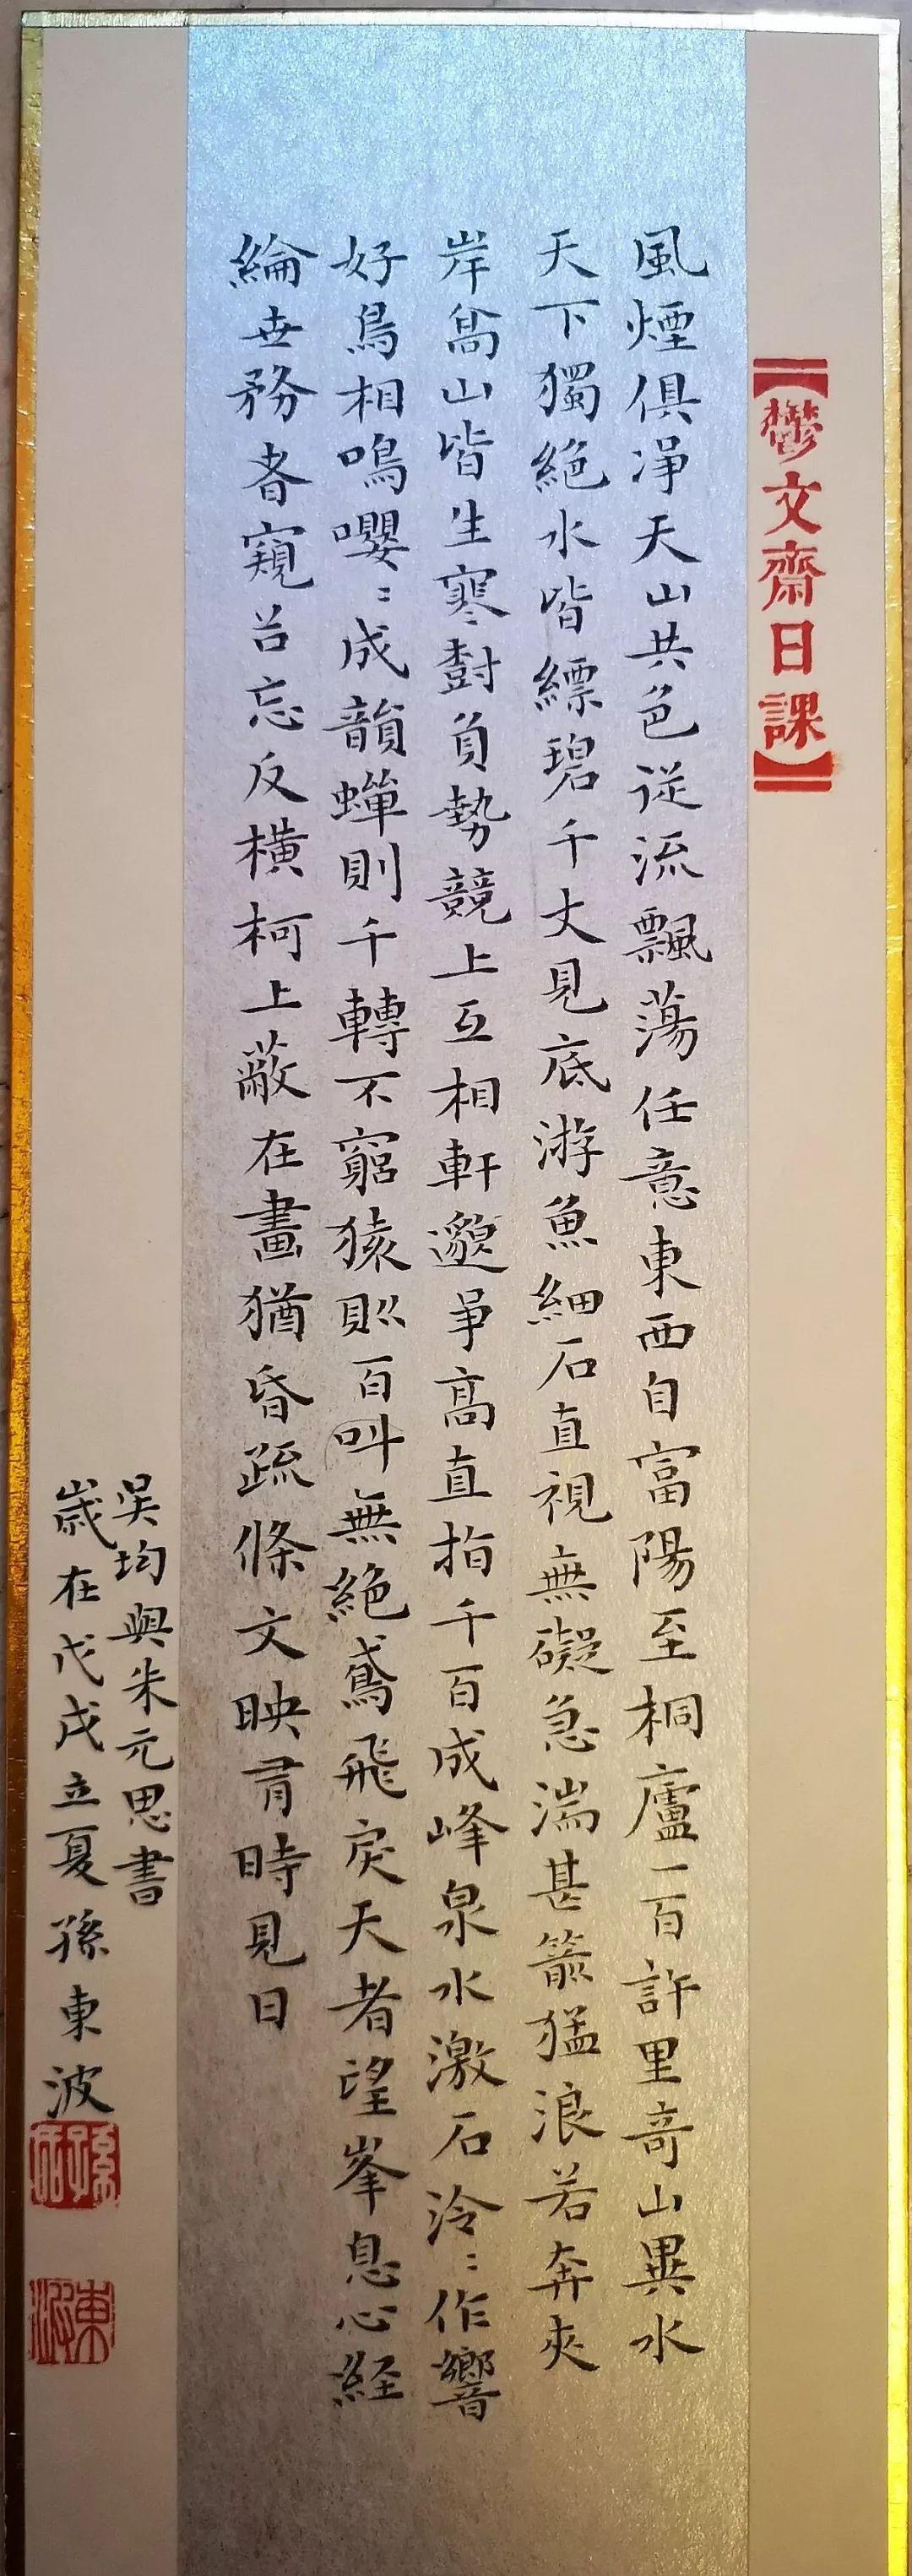 【鬱文齋日課】
風煙俱淨天山共色從流飄蕩任意東西自富陽至桐廬一百許里奇山異水
天下獨絕水皆縹碧千丈見底游魚細石直視無礙急湍甚箭猛浪若奔夾
岸高山皆生寒樹負勢競上互相軒邈爭高直指千百成峰泉水激石泠〻作響
好鳥相鳴嚶〻成韻蟬則千轉不窮猿則百叫無絕鳶飛戾天者望峯息心経
綸世務者窺谷忘反橫柯上蔽在晝猶昏疏條交映有時見日
吳均與朱元思書
歲在戊戌立夏孫東波